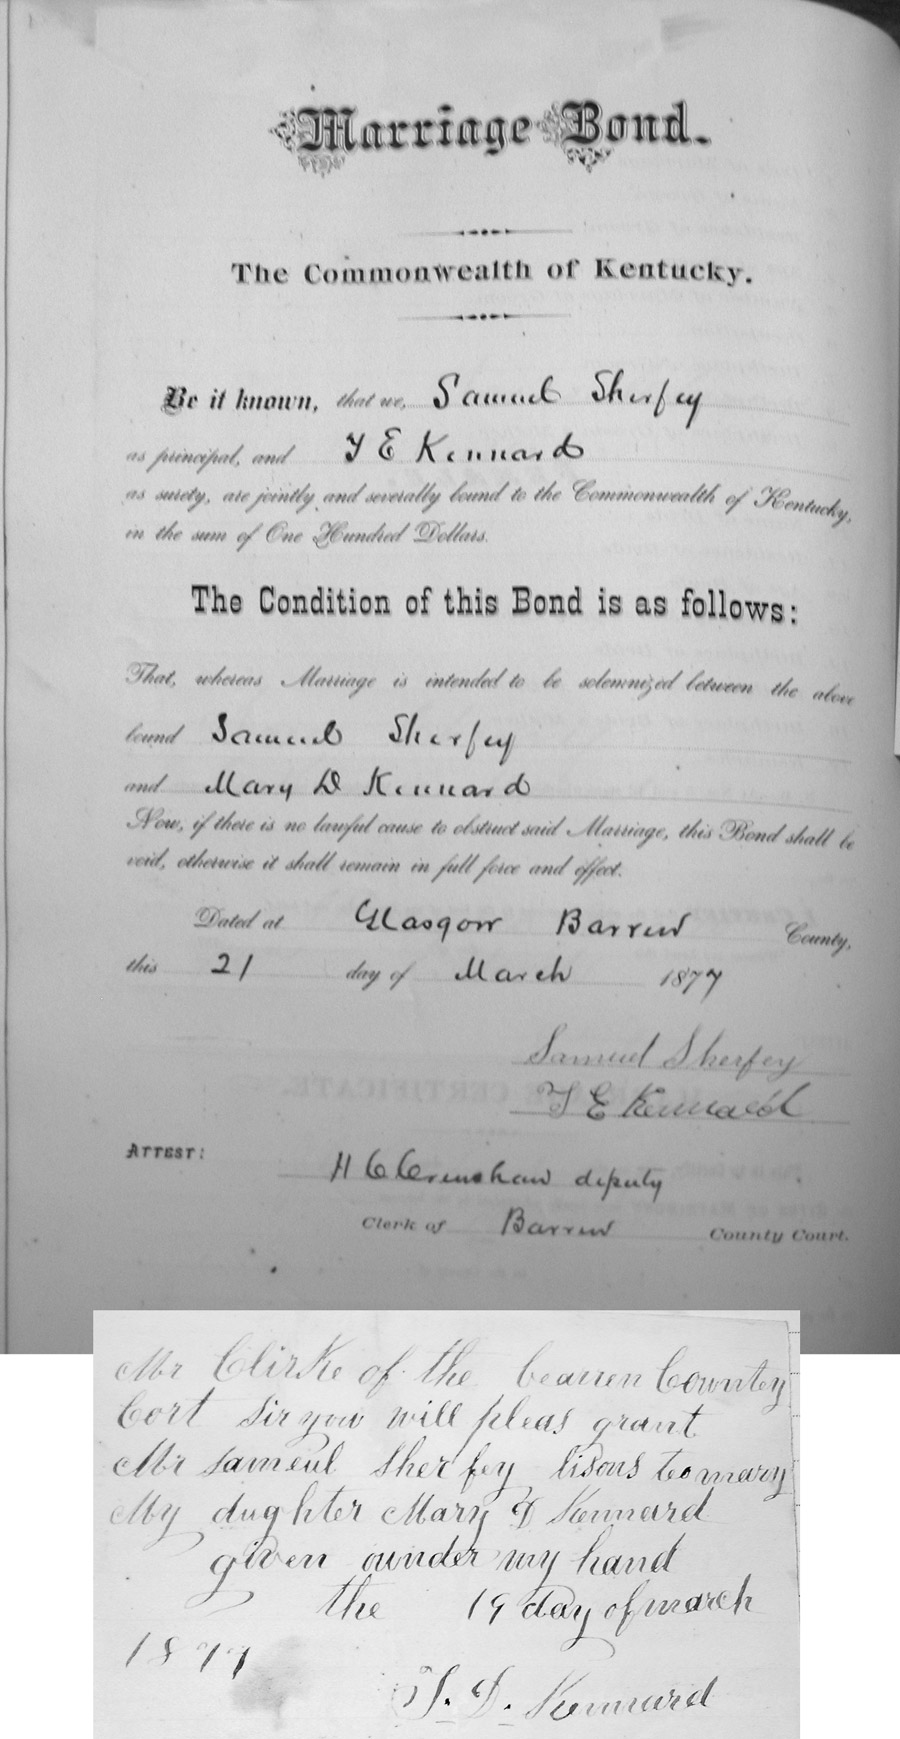 Marriage Bond.
The Commonwealth of Kentucky.
Be it known, that we, Samuel Sherfey
as principal, and T E Kennard
as surety, are jointly and severally bound to the Commonwealth of Kentucky,
in the sum of One Hundred Dollars.
The Condition of this Bond is as follows:
That, whereas Marriage is intended to be solemnized between the above
bound Samuel Sherfey
and Mary D Kennard
Now, if there is no lawful cause to obstruct said Marriage, this Bond shall be
void, otherwise it shall remain in full force and effect.
Dated at Glasgow Barren County,
this 21 day of March 1877
Samuel Sherfey
T E Kennard
ATTEST:
H C Crenshaw deputy
Clerk of Barren County Court.
Mr Clirke of the bearren Cownty
Cort sir you will pleas grant
Mr sameul sherfey lisons to mary
My dughter Mary D Kennard
given ounder my hand
the 19 day of march
1877
D. Kennard